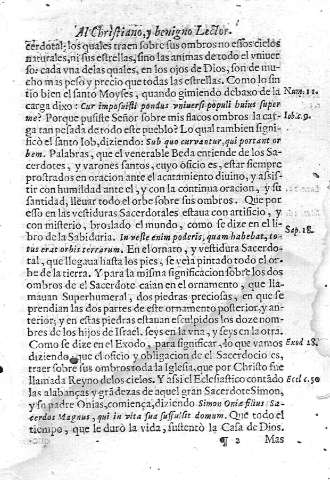 Al Christiano, y benigno Lector.
cerdotal: los quales traen sobre sus ombros no essos cielos
naturales, ni sus estrellas, sino las animas de todo el vniuer
so: cada vna de las quales, en los ojos de Dios, son de mu
cho mas peso y precio que todas las estrellas. Como lo sin
tio bien el santo Moyses, quando gimiendo debaxo de la
carga dixo: Cur imposuisti pondus vniuersi populi huius super Num. 11.
me? Porque pusiste Señor sobre mis flacos ombros la car
ga tan pesada de todo este pueblo? Lo qual tambien signi Iob. c. 9.
ficò el santo Iob, diziendo: Sub quo curvantur, qui portant or
bem. Palabras, que el venerable Beda entiende de los Sa-
cerdotes, y varones santos, cuyo oficio es, estar siempre
prostrados en oracion ante el acatamiento diuino, y assis-
tir con humildad ante el, y con la continua oracion, y su
santidad, lleuar todo el orbe sobre sus ombros. Que por
esso en las vestiduras Sacerdotales estaua con artificio, y
con misterio, broslado el mundo, como se dize en el li-
bro de la Sabiduria. In veste enim poderis, quam habebat, to- Sap. 18.
tus erat orbis terrarum. En el ornato, y vestidura Sacerdo-
tal, que llegaua hasta los pies, se veia pintado todo el or-
be de la tierra. Y para la misma significacion sobre los dos
ombros de el Sacerdote caian en el ornamento, que lla-
mauan Superhumeral, dos piedras preciosas, en que se
prendian las dos partes de este ornamento posterior, y an-
terior; y en estas piedras estauan esculpidos los doze nom-
bres de los hijos de Israel. seys en la vna, y seys en la otra.
Como se dize en el Exodo, para significar, lo que vamos Exod 28.
diziendo, que el oficio y obligacion de el Sacerdocio es,
traer sobre sus ombros toda la Iglesia, que por Christo fue
llamada Reyno de los cielos. Y assi el Eclesiastico contãdo Eccl c. 50
las alabanças y grãdezas de aquel gran Sacerdote Simon,
y so padre Onias, comiença, diziendo Simon Oniæ filius, Sa-
cerdos Magnus, qui in vita sua suffulsit domum. Que todo el
tiempo, que le durò la vida, sustentò la Casa de Dios.
¶ 2 Mas